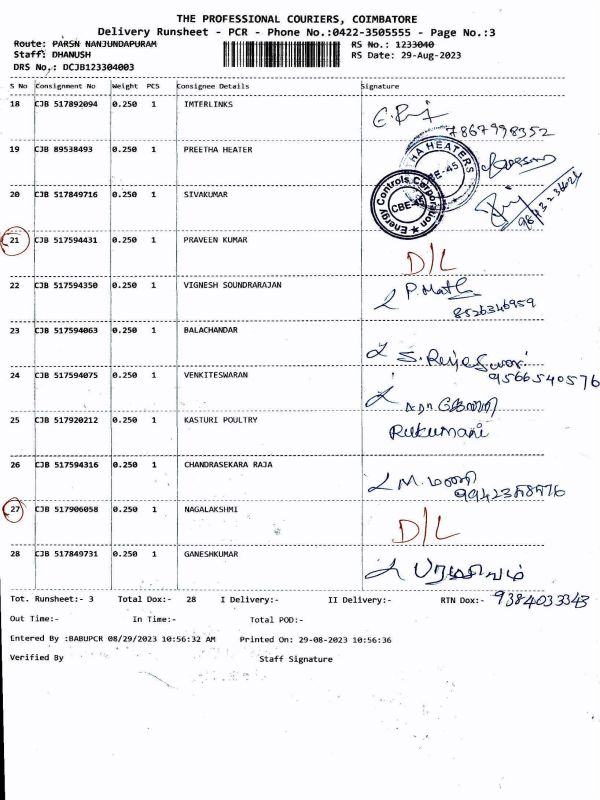 THE PROFESSIONAL COURIERS, COIMBATORE
Delivery Runsheet - PCR - Phone No.:0422-3505555 - Page No.:3
Route: PARSN NANJUNDAPURAM RS No.: 1233040
Staff: DHANUSH RS Date: 29-Aug-2023
DRS No.: DCJB123304003
S No Consignment No Weight PCS Consignee Details Signature
18 CJB 517892094 0.250 1 IMTERLINKS
7867998352
19 CJB 89538493 0.250 1 PREETHA HEATER
HA HEATERS
BE-45
20 CJB 517849716 0.250 1 SIVAKUMAR
Energy Controls Corporation ★
CBE-45
21 CJB 517594431 0.250 1 PRAVEEN KUMAR
D/L
22 CJB 517594350 0.250 1 VIGNESH SOUNDRARAJAN
P.Math
8526346959
23 CJB 517594063 0.250 1 BALACHANDAR
9566540576
24 CJB 517594075 0.250 1 VENKITESWARAN
25 CJB 517920212 0.250 1 KASTURI POULTRY
Rukumani
26 CJB 517594316 0.250 1 CHANDRASEKARA RAJA
M. மணி
27 CJB 517906058 0.250 1 NAGALAKSHMI
D/L
28 CJB 517849731 0.250 1 GANESHKUMAR
Tot. Runsheet:- 3 Total Dox:- 28 I Delivery:- II Delivery:- RTN Dox:- 9384033343
Out Time:- In Time:- Total POD:-
Entered By :BABUPCR 08/29/2023 10:56:32 AM Printed On: 29-08-2023 10:56:36
Verified By Staff Signature